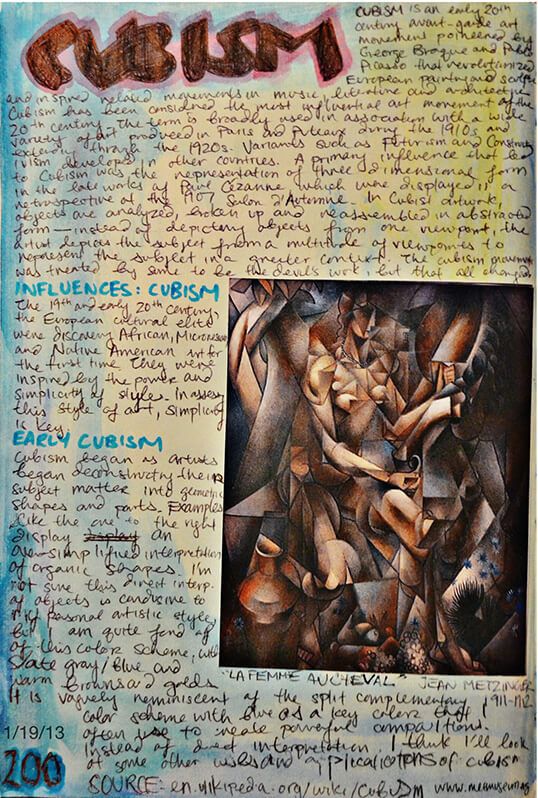 CUBISM
CUBISM is an early 20th
century avant-garde art
movement pioneered by
George Braque and Pablo
Picasso that revolutionized
European painting and sculpture
and inspired related movements in music, literature and architecture.
Cubism has been considered the most influential art movement of the
20th century. The term is broadly used in association with a wide
variety of art produced in Paris and Puteaux during the 1910s and
extending through the 1920s. Variants such as Futurism and Constructi
vism developed in other countries. A primary influence that led
to Cubism was the representation of three dimensional form
in the late works of Paul Cézanne which were displayed in a
retrospective at the 1907 Salon d'Automne. In Cubist artwork,
objects are analyzed, broken up and reassembled in abstracted
form—instead of depicting objects from one viewpoint, the
artist depicts the subject from a multitude of viewpoints to
represent the subject in a greater context. The cubism movement
was treated by some to be the devil's work, but that all changed
INFLUENCES: CUBISM
The 19th and early 20th century,
the European cultural elite
were discovery African, Micronesian
and Native American art for
the first time. They were
inspired by the power and
simplicity of styles. In assess
this style of art, simplicity
is key.
EARLY CUBISM
Cubism began as artists
began deconstructing their
subject matter into geometric
shapes and parts. Examples
like the one to the right
display an
over-simplified interpretation
of organic shapes. I'm
not sure this direct interp.
of objects is conducive to
my personal artistic style,
but I am quite fond of
of this color scheme, with
slate gray/blue and
warm browns and golds.
"LA FEMME AU CHEVAL" JEAN METZINGER
1911-1912
It is vaguely reminiscent of the split complementary
color scheme with blue as a key color that I
often use to create powerful compositions.
Instead of direct interpretation, I think I'll look
at some other works and applications of cubism
1/19/13
200
SOURCE: en.wikipedia.org/wiki/cubism